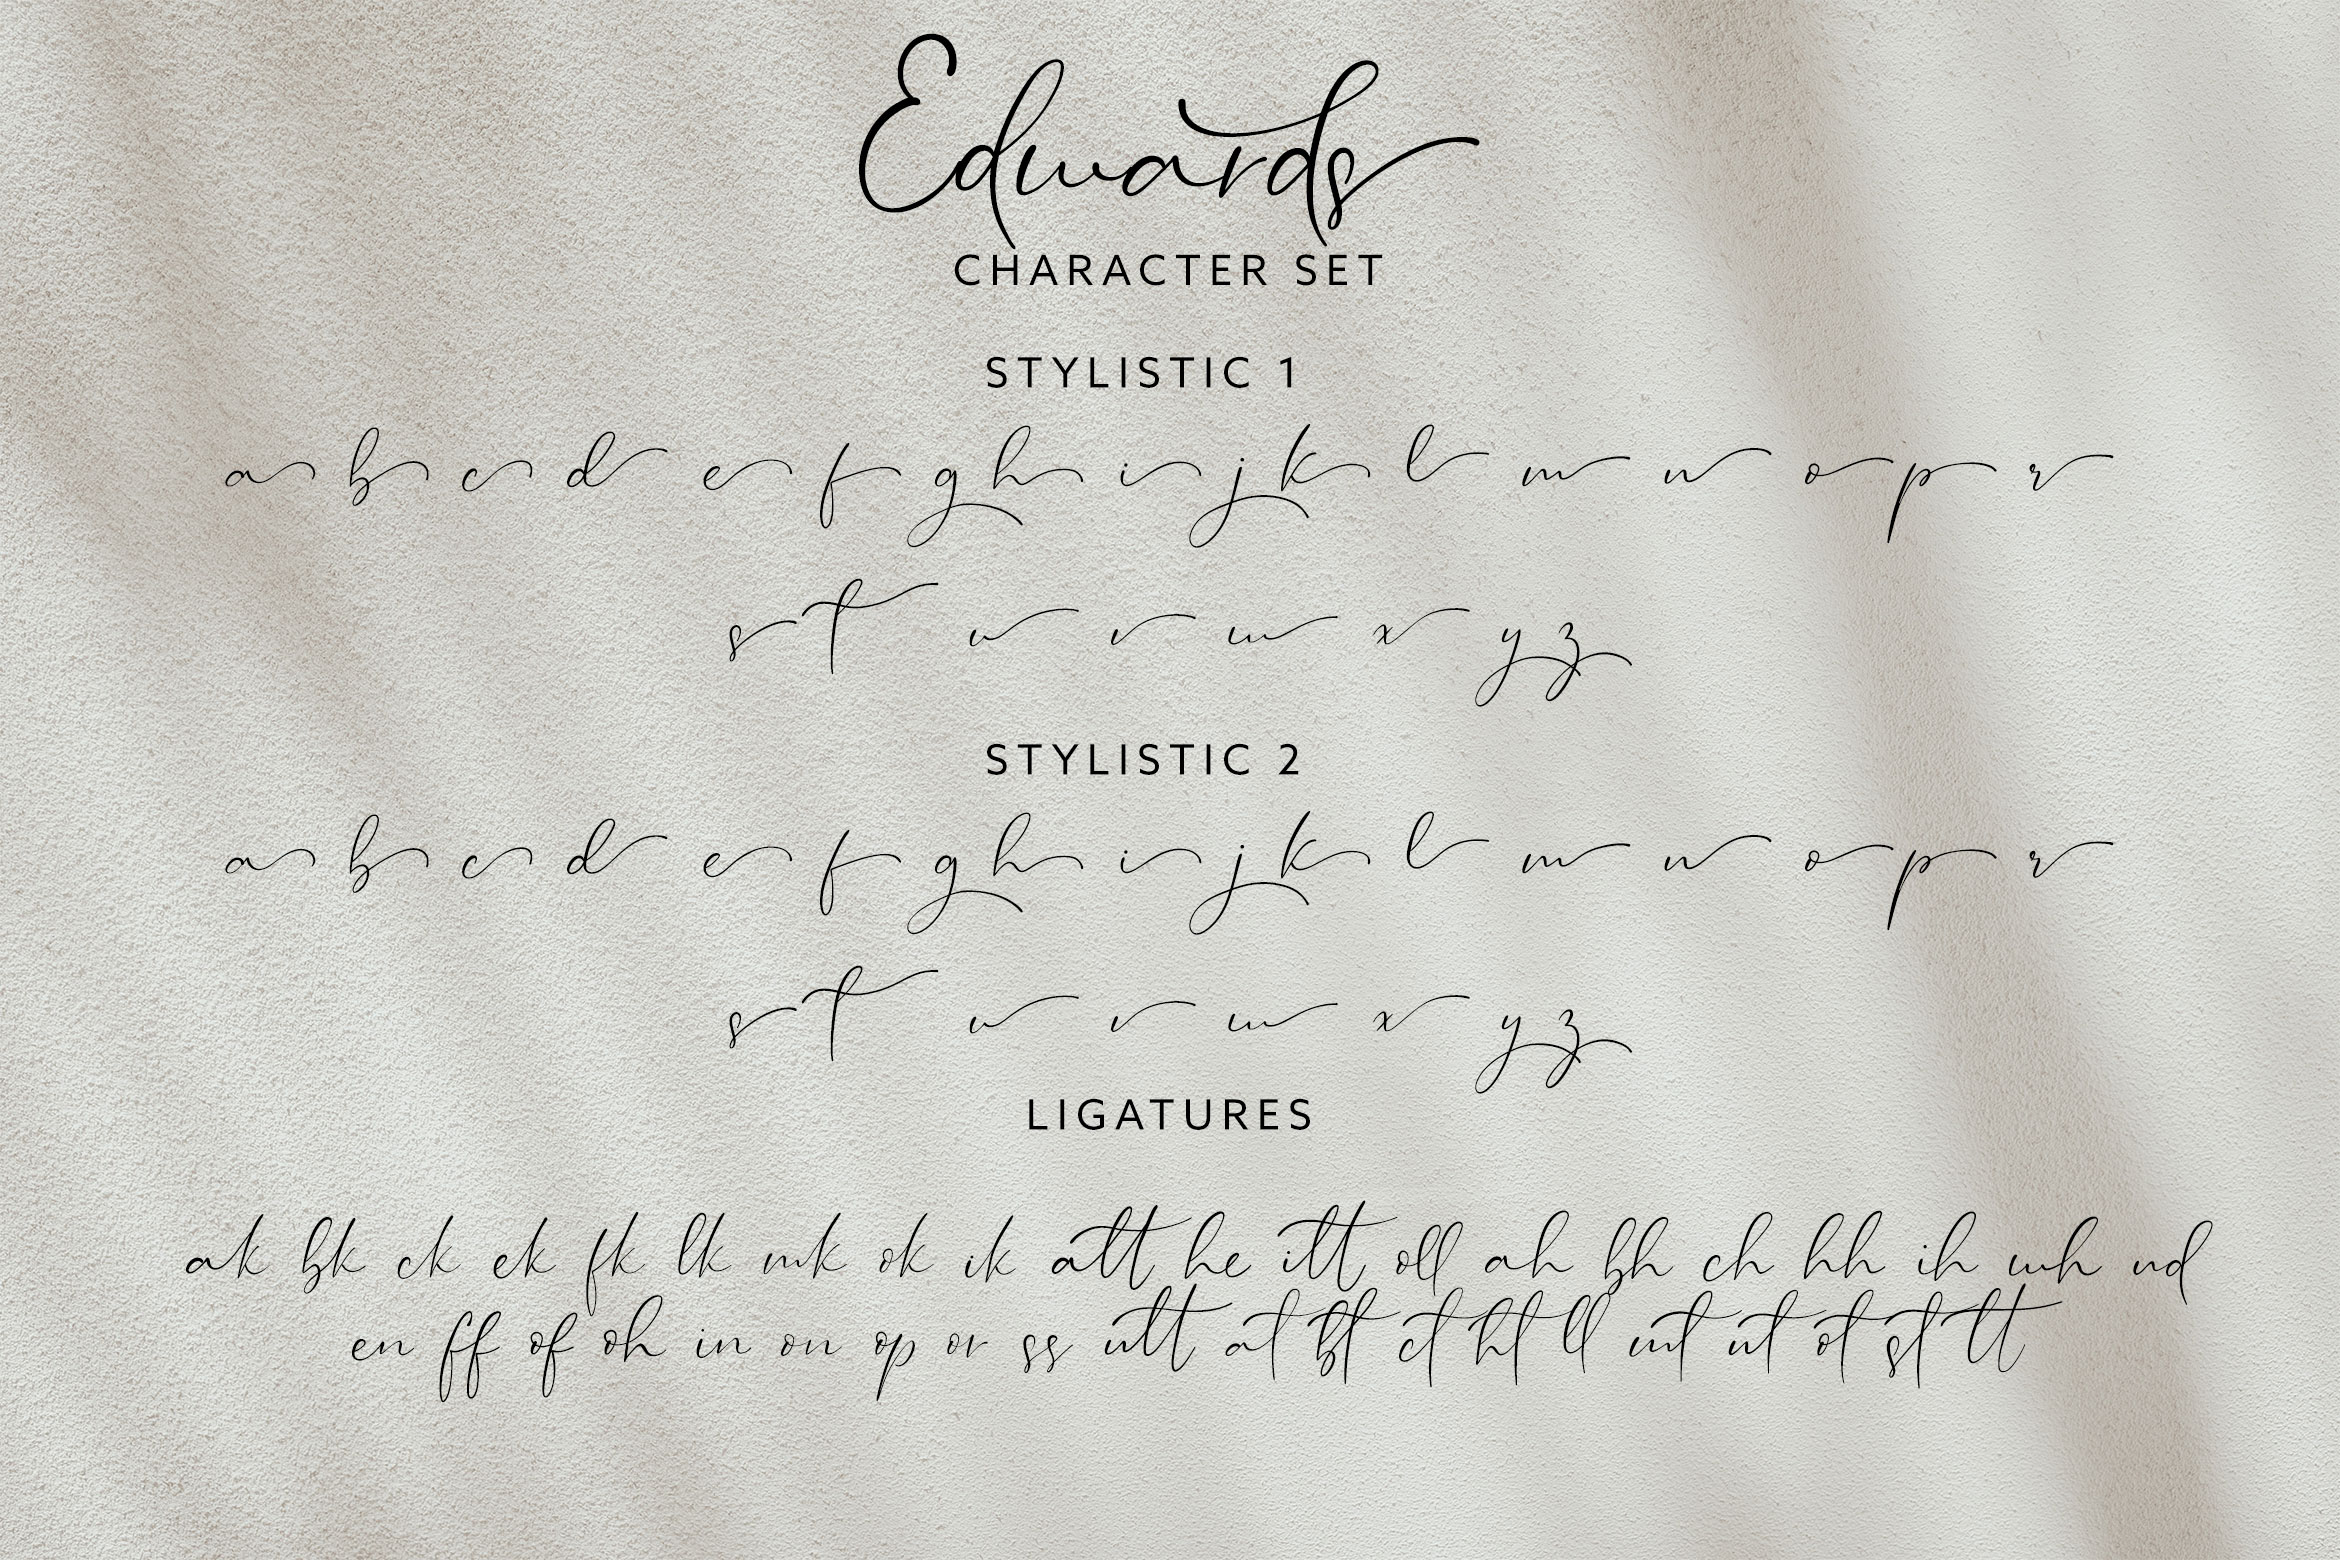 Edwards
CHARACTER SET
STYLISTIC 1
a b c d e f g h i j k l m n o p r
s t u v w x y z
STYLISTIC 2
a b c d e f g h i j k l m n o p r
s t u v w x y z
LIGATURES
ak bk ck ek fk lk mk ok ik att he itt oll ah bh ch hh ih wh nd
en ff of oh in on op or ss utt at bt ct ht ll mt nt ot st tt